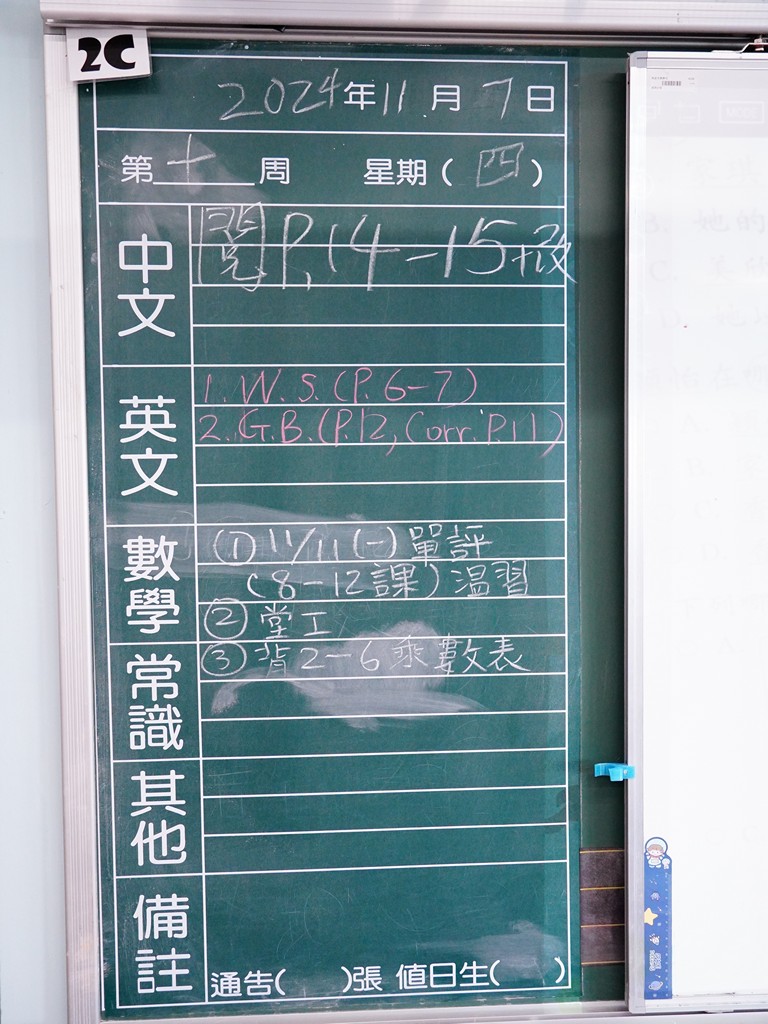 2C
2024年11月7日
第十周 星期(四)
中文
閱P.14-15+改
英文
1. W.S.(P.6-7)
2. G.B.(P.12, Corr.P.11)
數學
① 11/11(一)單評
(8-12課)温習
② 堂工
③ 背2-6乘數表
常識
其他
備註
通告( )張 值日生( )